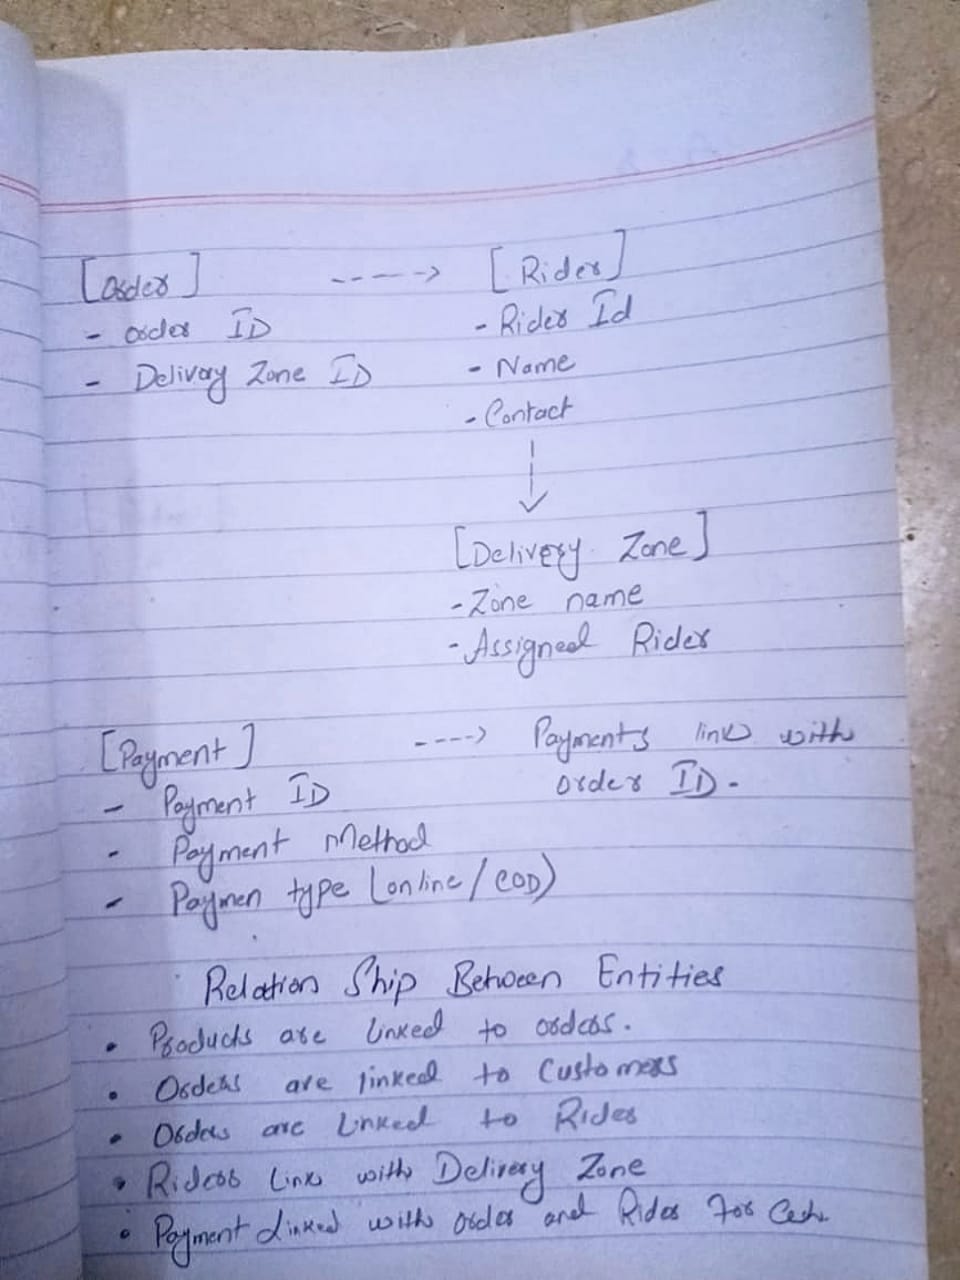 [Order] -----> [Rider]
- order ID
- Rider Id
- Delivery Zone ID
- Name
- Contact
[Delivery Zone]
- Zone name
- Assigned Rider
[Payment] ----> Payments link with
order ID.
- Payment ID
- Payment Method
- Paymen type (online/COD)
Relation Ship Between Entities
• Products are linked to orders.
• Orders are linked to Customers
• Orders are Linked to Rider
• Riders Link with Delivery Zone
• Payment Linked with order and Rider For Cash.